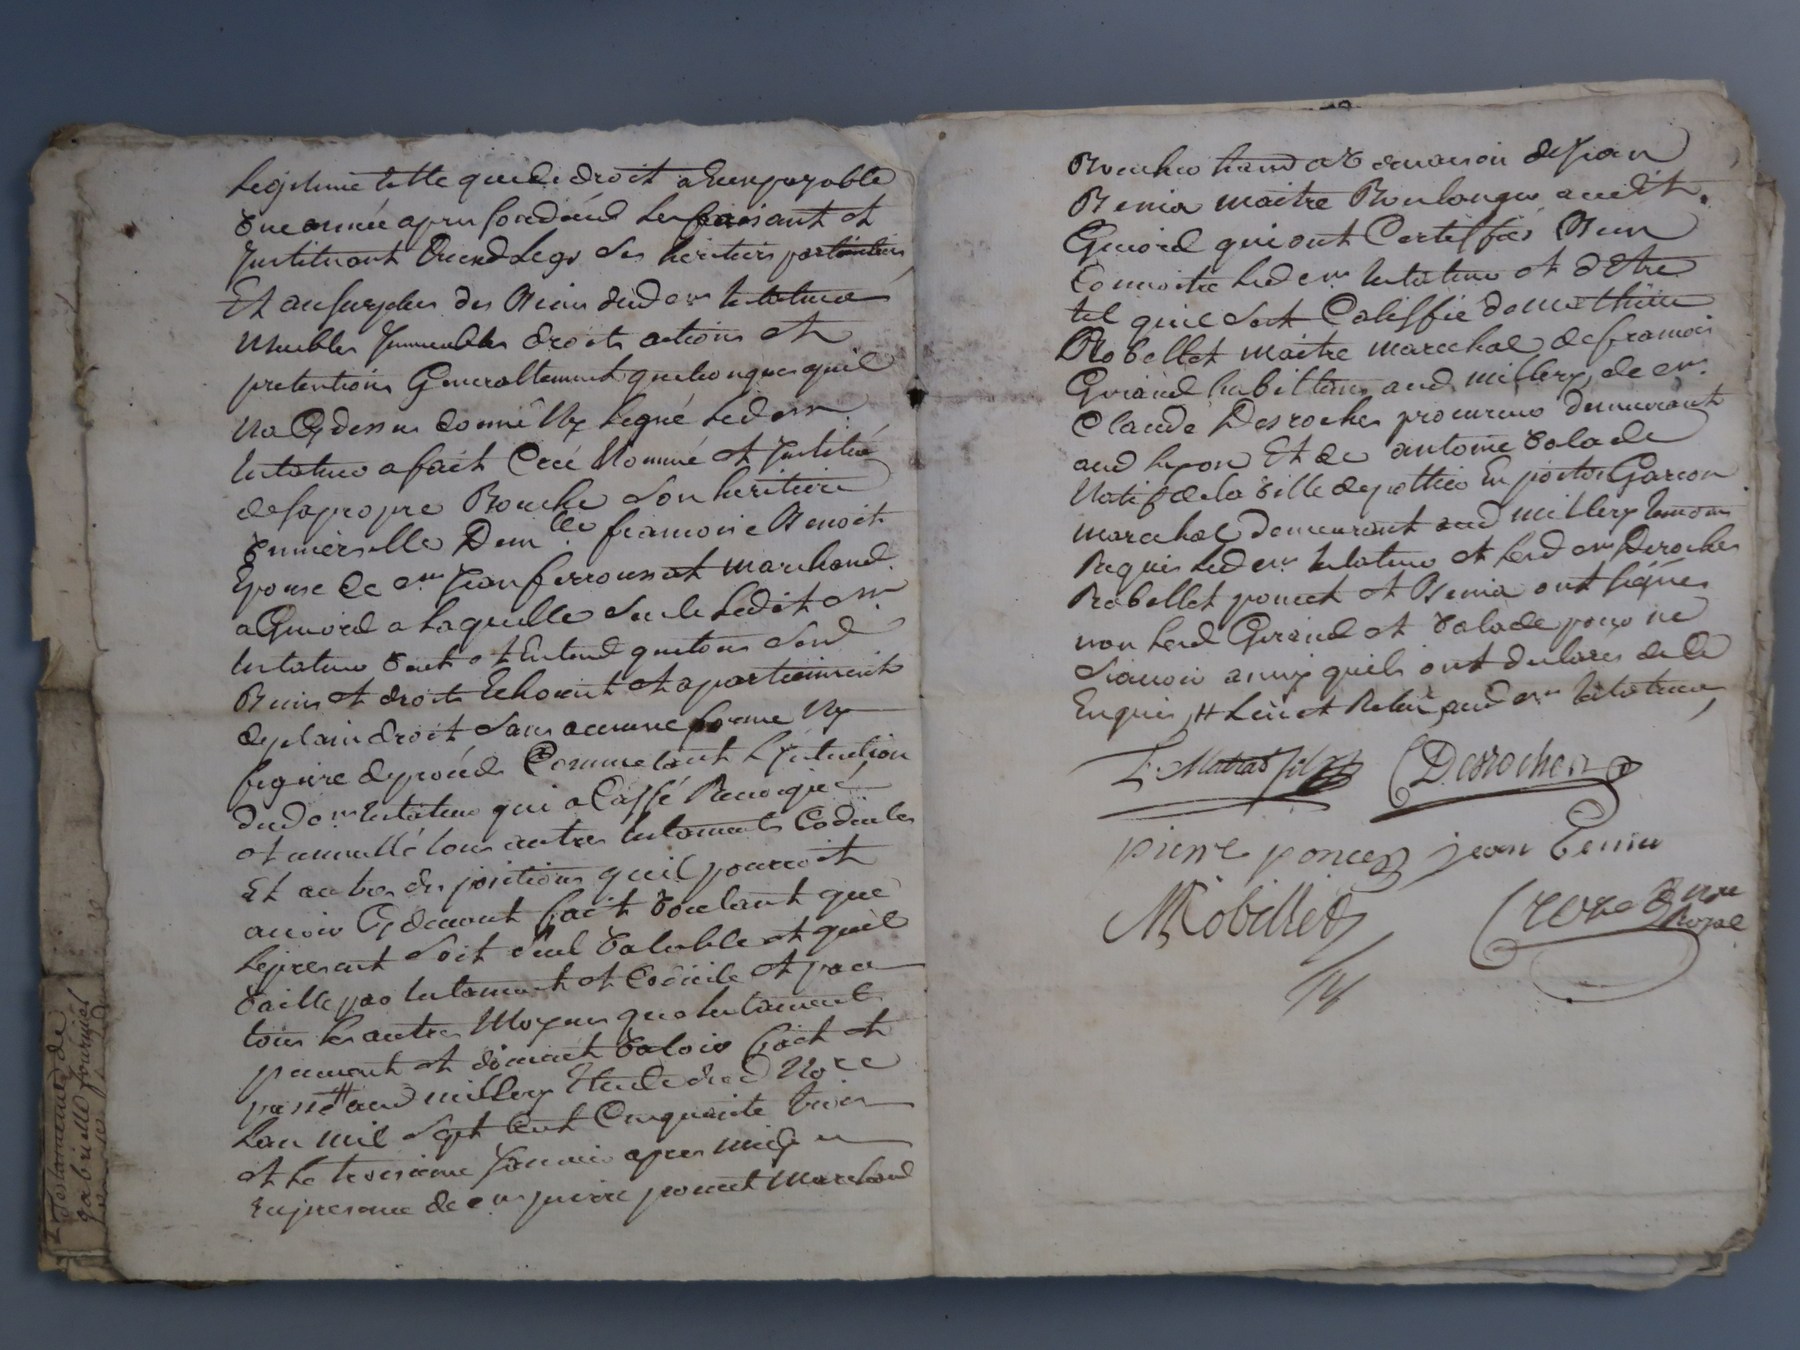 Legitime telle que de droit a eux payable
une année apres son deceds les faisant et
Instituant Quend Legs ses heritiers particuliers
Et au surplus des Biens dud sr testateur
Meubles Immeubles droits actions et
pretentions Generallement quelconques quil
Na Cy dessus donné Ny Legué Led sr
testateur a fait Créé Nommé et Institué
de sa propre Bouche son heritiere
Universelle Demlle francoise Benoit
Epouse de sr Jean ferroussat marchand
a Givord a Laquelle seule Ledit sr
testateur veut et Entend que tous sesd
Biens et droits Echoient et apartiennent
de plain droit sans aucune forme Ny
figure de procés Comme etant L'Intention
dud sr testateur qui a Cassé Revoqué
et annullé tous autres testaments Codicules
Et autres dispositions quil pourroit
avoir Cy devant fait voulant que
Le present soit seul valable et quil
vaille par testament et Codicile et par
tous les autres Moyens que testament
peuvent et doivent valoir fait et
passé # aud millery Etude dud Nore
Lan mil sept cent Cinquante trois
et Le troisieme Janvier apres midy
En presence de sr pierre poncet Marchand
Boucher aud demeurant de Jean
Benia maitre Boulanger audit
Givord qui ont Certiffiés Bien
Connoitre Led sr testateur et d'Etre
tel quil s'est Califfié de mathieu
Robellet maitre marechal de francois
Girand habittans aud millery, de sr
Claude Desroches procureur demeurant
aud Lyon Et de antoine valade
Natif de la ville de pottiers En poitou Garcon
marechal demeurant aud millery temoins
Requis Led sr testateur et Lesd srs Deroches
Robellet poncet et Benia ont signés
non Lesd Girand et valade pour ne
scavoir ainsy quils ont declarés de ce
Enquis # Leu et Relu aud sr testateur
L. Matras fils Desroches
pierre poncet jean Benia
M Robellet
Nore Royal
Testament de
gabrielle fournier